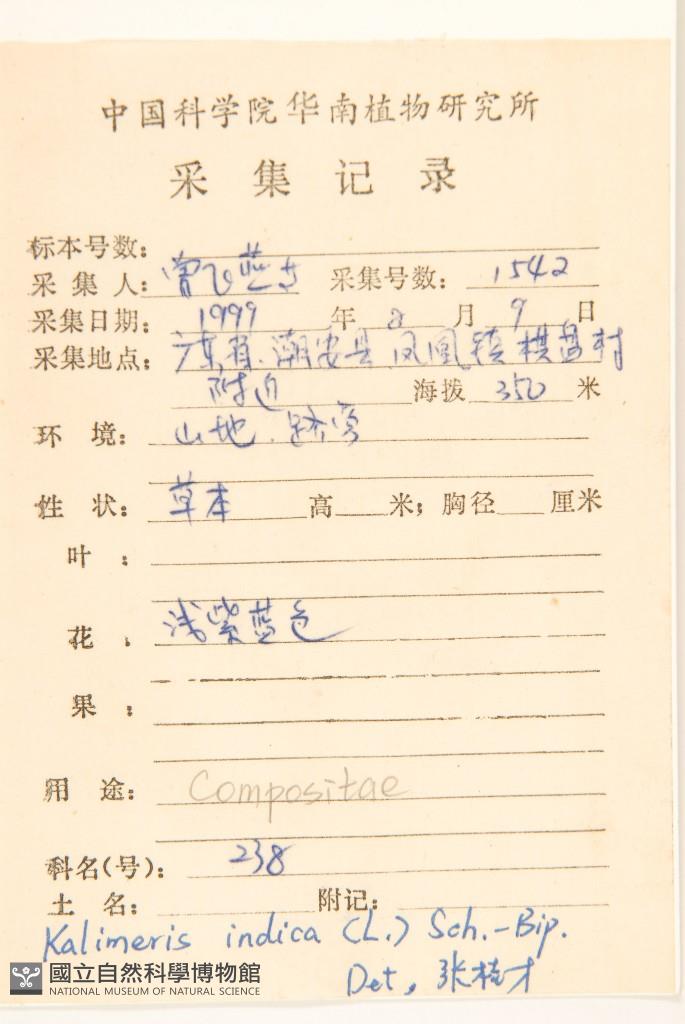 中国科学院华南植物研究所
采集记录
标本号数：
采集人：曾飞 采集号数：1542
采集日期：1999年8月9日
采集地点：广东省．潮安县凤凰镇棋盘村
附近 海拨350米
环境：山地．路旁
性状：草本 高 米；胸径 厘米
叶：
花：浅紫蓝色
果：
用途：Compositae
科名(号)：238
土名： 附记：
Kalimeris indica (L.) Sch.-Bip.
Det. 张桂才
國立自然科學博物館
NATIONAL MUSEUM OF NATURAL SCIENCE